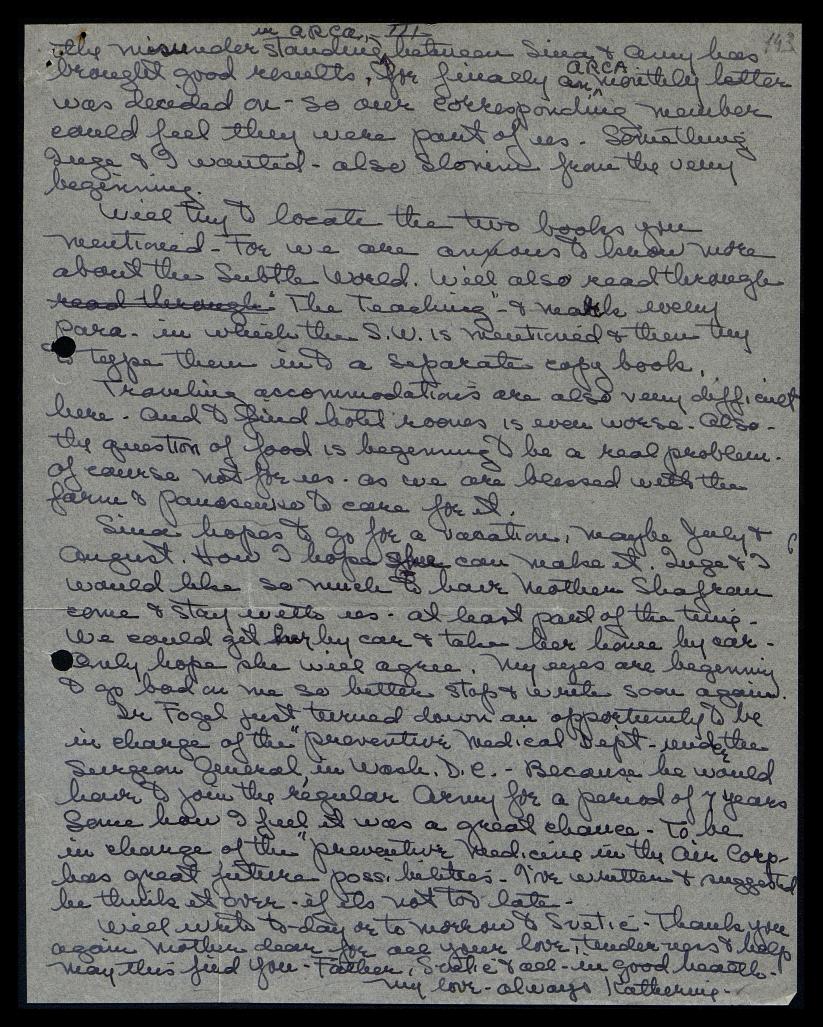 in ARCA, III
143
the misunderstanding between Sina & Amy has
ARCA
brought good results, for finally an monthly letter
was decided on - so our corresponding member
could feel they were part of us. Something
Inge & I wanted - also Slonim from the very
beginning.
Will try to locate the two books you
mentioned - For we are anxious to know more
about the Subtle World. Will also read through
read through "The Teaching" - & mark every
para - in which the S.W. is mentioned & then try
to type them into a separate copy book.
Traveling accommodations are also very difficult
here. And to find hotel rooms is even worse. Also -
the question of food is beginning to be a real problem.
of course not for us - as we are blessed with the
farm & to care for it.
Sina hopes to go for a vacation, maybe July &
August. How I hope she can make it. Inge & I
would like so much to have Mother Shafran
come & stay with us - at least part of the time -
We could get her by car & take her home by car -
Only hope she will agree. My eyes are beginning
to go bad on me so better stop & write soon again.
Dr Fogel just turned down an opportunity to be
in charge of the "preventive Medical Dept - under the
Surgeon General, in Wash. D.C. - Because he would
have to join the regular Army for a period of 7 years
Some how I feel it was a great chance - To be
in charge of the "preventive Medicine in the Air Corp -
has great future possibilities - I've written & suggested
he think it over - if its not too late -
Will write to-day or to morrow to Svetic - Thank you
again Mother dear for all your love, tenderness & help
May this find you - Father, Svetic & all - in good health.
My love - always Katherine -